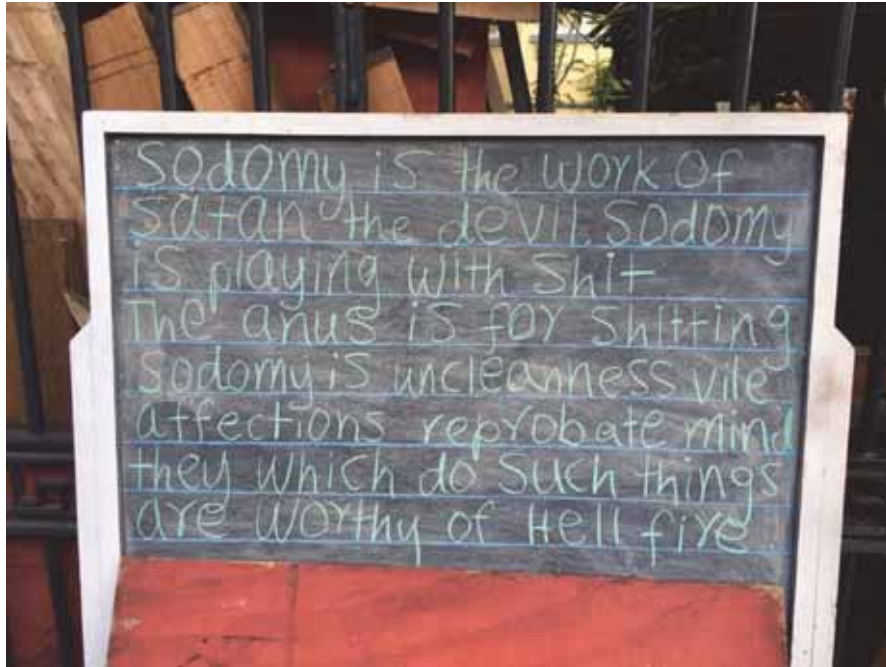 Sodomy is the work of
satan the devil. Sodomy
is playing with shit
The anus is for shitting
Sodomy is uncleanness vile
affections reprobate mind
they which do such things
are worthy of Hell fire.